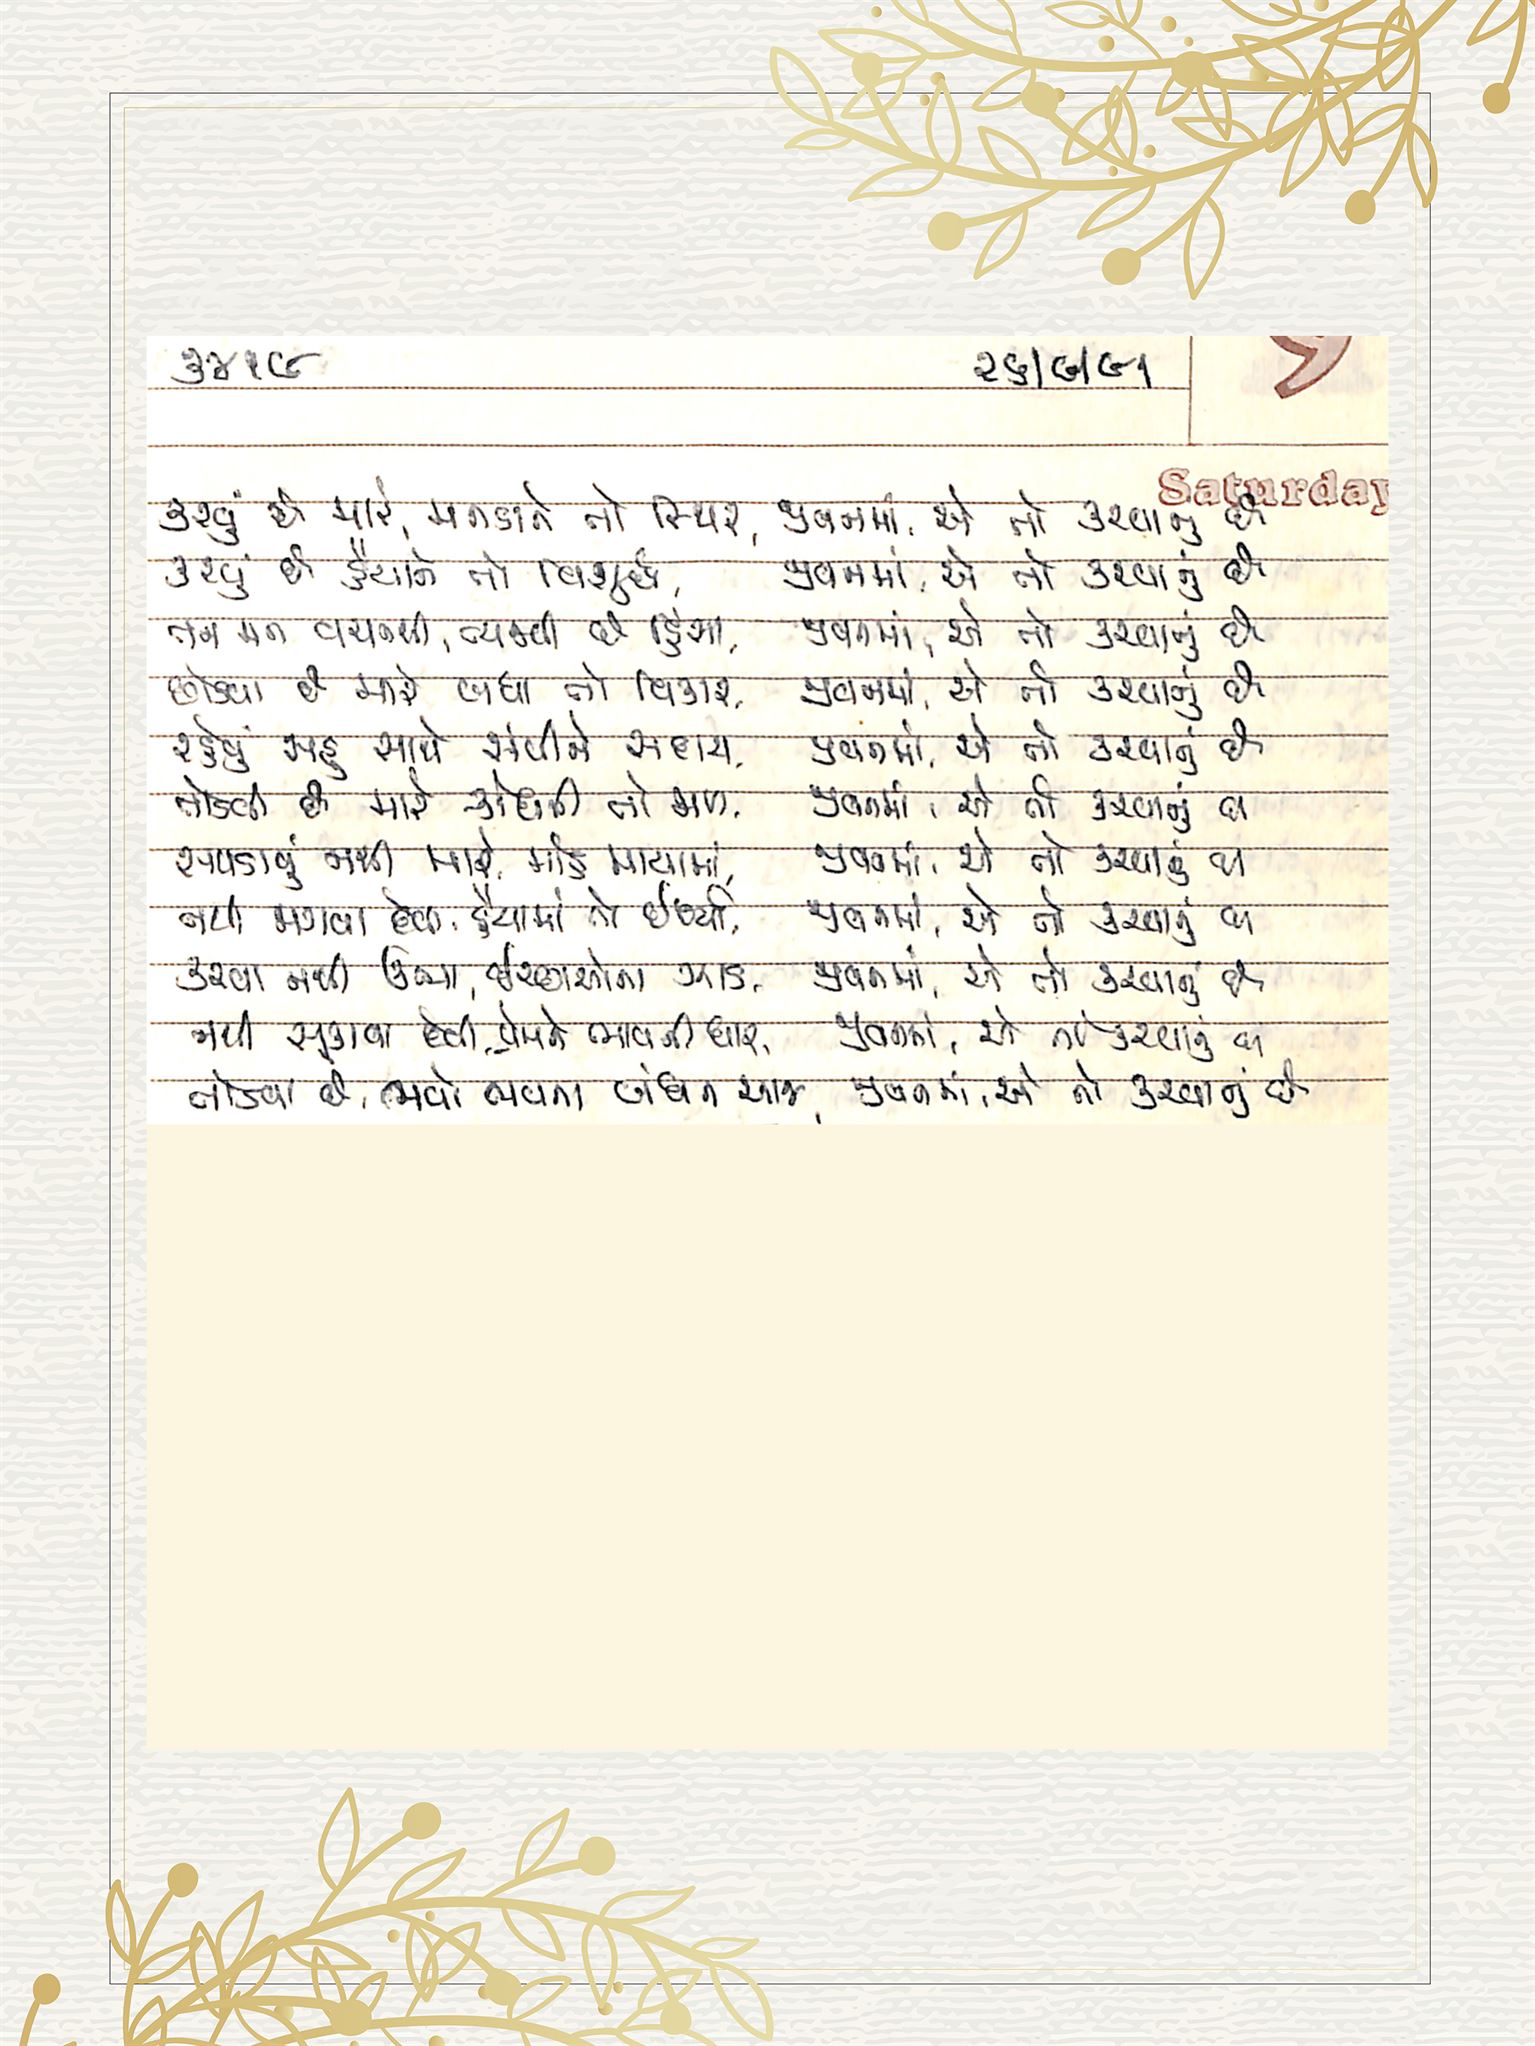 ૩૪૧૯ ૨૬/૭/૯૧
Saturday
કરવું છે મારે, મનડાને તો સ્થિર, જીવનમાં, એ તો કરવાનું છે
કરવું છે હૈયાને તો વિશુદ્ધ, જીવનમાં, એ તો કરવાનું છે
તન મન વચનથી, ત્યજવી છે હિંસા, જીવનમાં, એ તો કરવાનું છે
છોડવા છે મારે બધા તો વિકાર, જીવનમાં, એ તો કરવાનું છે
રહેવું સહુ સાથે સંપીને સદાય, જીવનમાં, એ તો કરવાનું છે
તોડવી છે મારે ક્રોધની તો જાળ, જીવનમાં, એ તો કરવાનું છે
સપડાવું નથી મારે, મોહ માયામાં, જીવનમાં, એ તો કરવાનું છે
નથી જાગવા દેવી, હૈયામાં તો ઈર્ષ્યા, જીવનમાં, એ તો કરવાનું છે
કરવા નથી ઊભા, ઇચ્છાઓના ઝાડ, જીવનમાં, એ તો કરવાનું છે
નથી સૂકાવા દેવી, પ્રેમને ભાવની ધાર, જીવનમાં, એ તો કરવાનું છે
તોડવા છે, ભવો ભવના બંધન આજ, જીવનમાં, એ તો કરવાનું છે